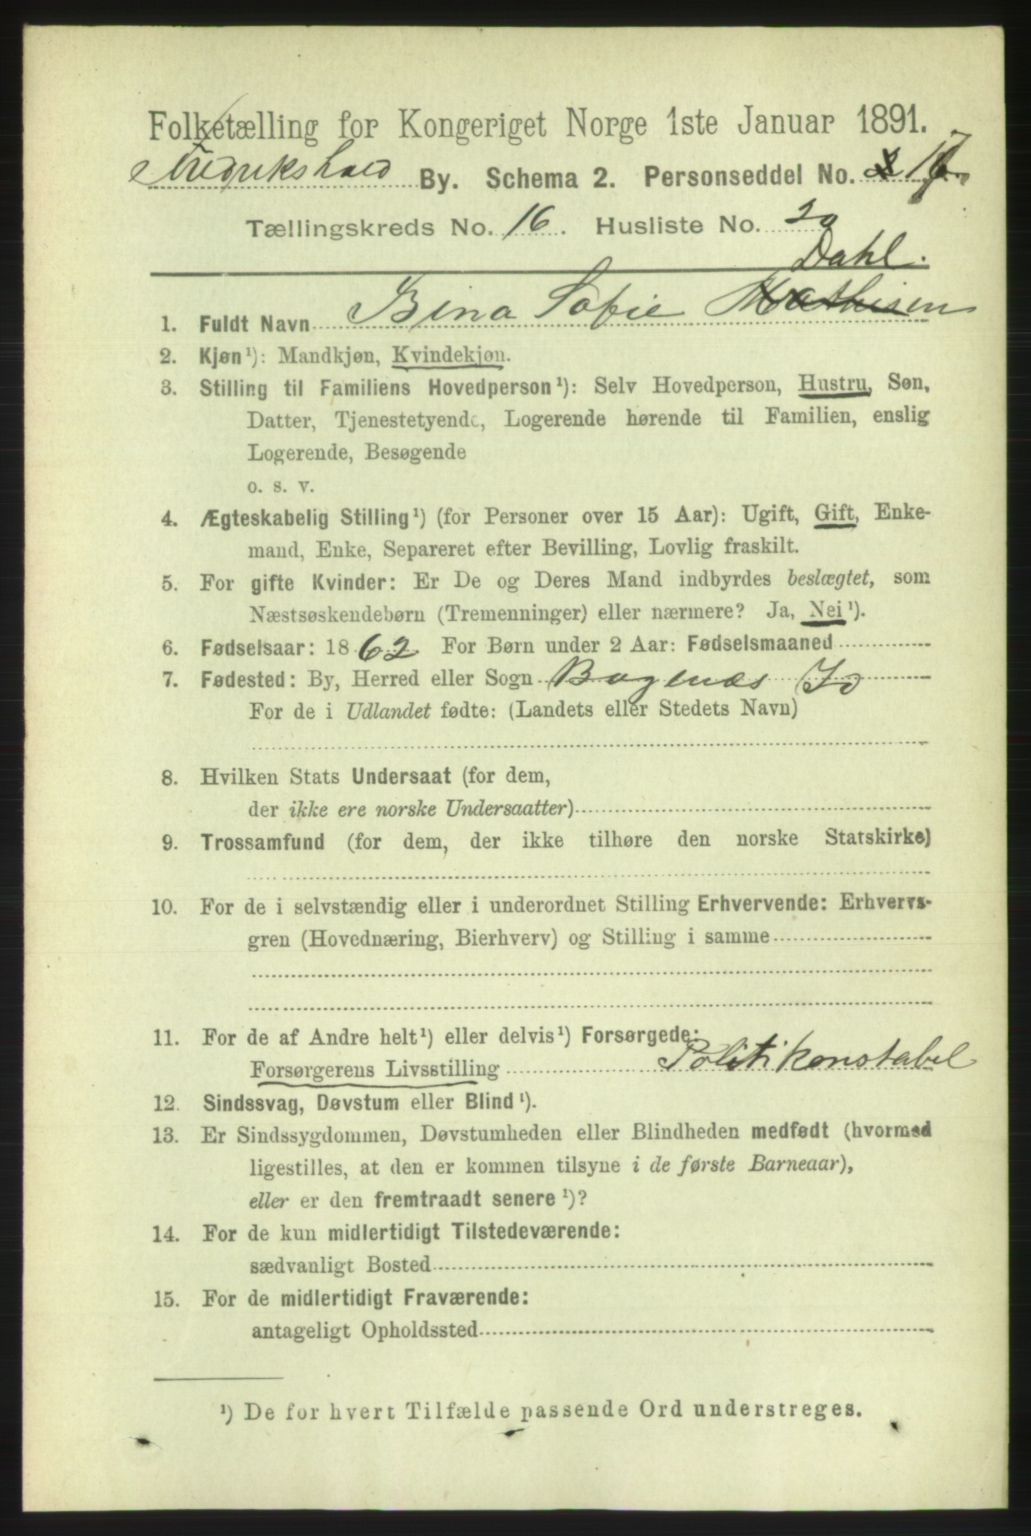 Folketælling for Kongeriget Norge 1ste Januar 1891.
Fredrikshald By. Schema 2. Personseddel No. 17
Tællingskreds No. 16. Husliste No. 20
Dahl.
1. Fuldt Navn Bina Sofie Mathisen
2. Kjøn¹): Mandkjøn, Kvindekjøn.
3. Stilling til Familiens Hovedperson¹): Selv Hovedperson, Hustru, Søn,
Datter, Tjenestetyende, Logerende hørende til Familien, enslig
Logerende, Besøgende
o. s. v.
4. Ægteskabelig Stilling¹) (for Personer over 15 Aar): Ugift, Gift, Enke-
mand, Enke, Separeret efter Bevilling, Lovlig fraskilt.
5. For gifte Kvinder: Er De og Deres Mand indbyrdes beslægtet, som
Næstsøskendebørn (Tremenninger) eller nærmere? Ja, Nei¹).
6. Fødselsaar: 1862 For Børn under 2 Aar: Fødselsmaaned
7. Fødested: By, Herred eller Sogn Bagnæs Id
For de i Udlandet fødte: (Landets eller Stedets Navn)
8. Hvilken Stats Undersaat (for dem,
der ikke ere norske Undersaatter)
9. Trossamfund (for dem, der ikke tilhøre den norske Statskirke)
10. For de i selvstændig eller i underordnet Stilling Erhvervende: Erhvervs-
gren (Hovednæring, Bierhverv) og Stilling i samme
11. For de af Andre helt¹) eller delvis¹) Forsørgede:
Forsørgerens Livsstilling Politikonstabel
12. Sindssvag, Døvstum eller Blind¹).
13. Er Sindssygdommen, Døvstumheden eller Blindheden medfødt (hvormed
ligestilles, at den er kommen tilsyne i de første Barneaar),
eller er den fremtraadt senere¹)?
14. For de kun midlertidigt Tilstedeværende:
sædvanligt Bosted
15. For de midlertidigt Fraværende:
antageligt Opholdssted
¹) De for hvert Tilfælde passende Ord understreges.